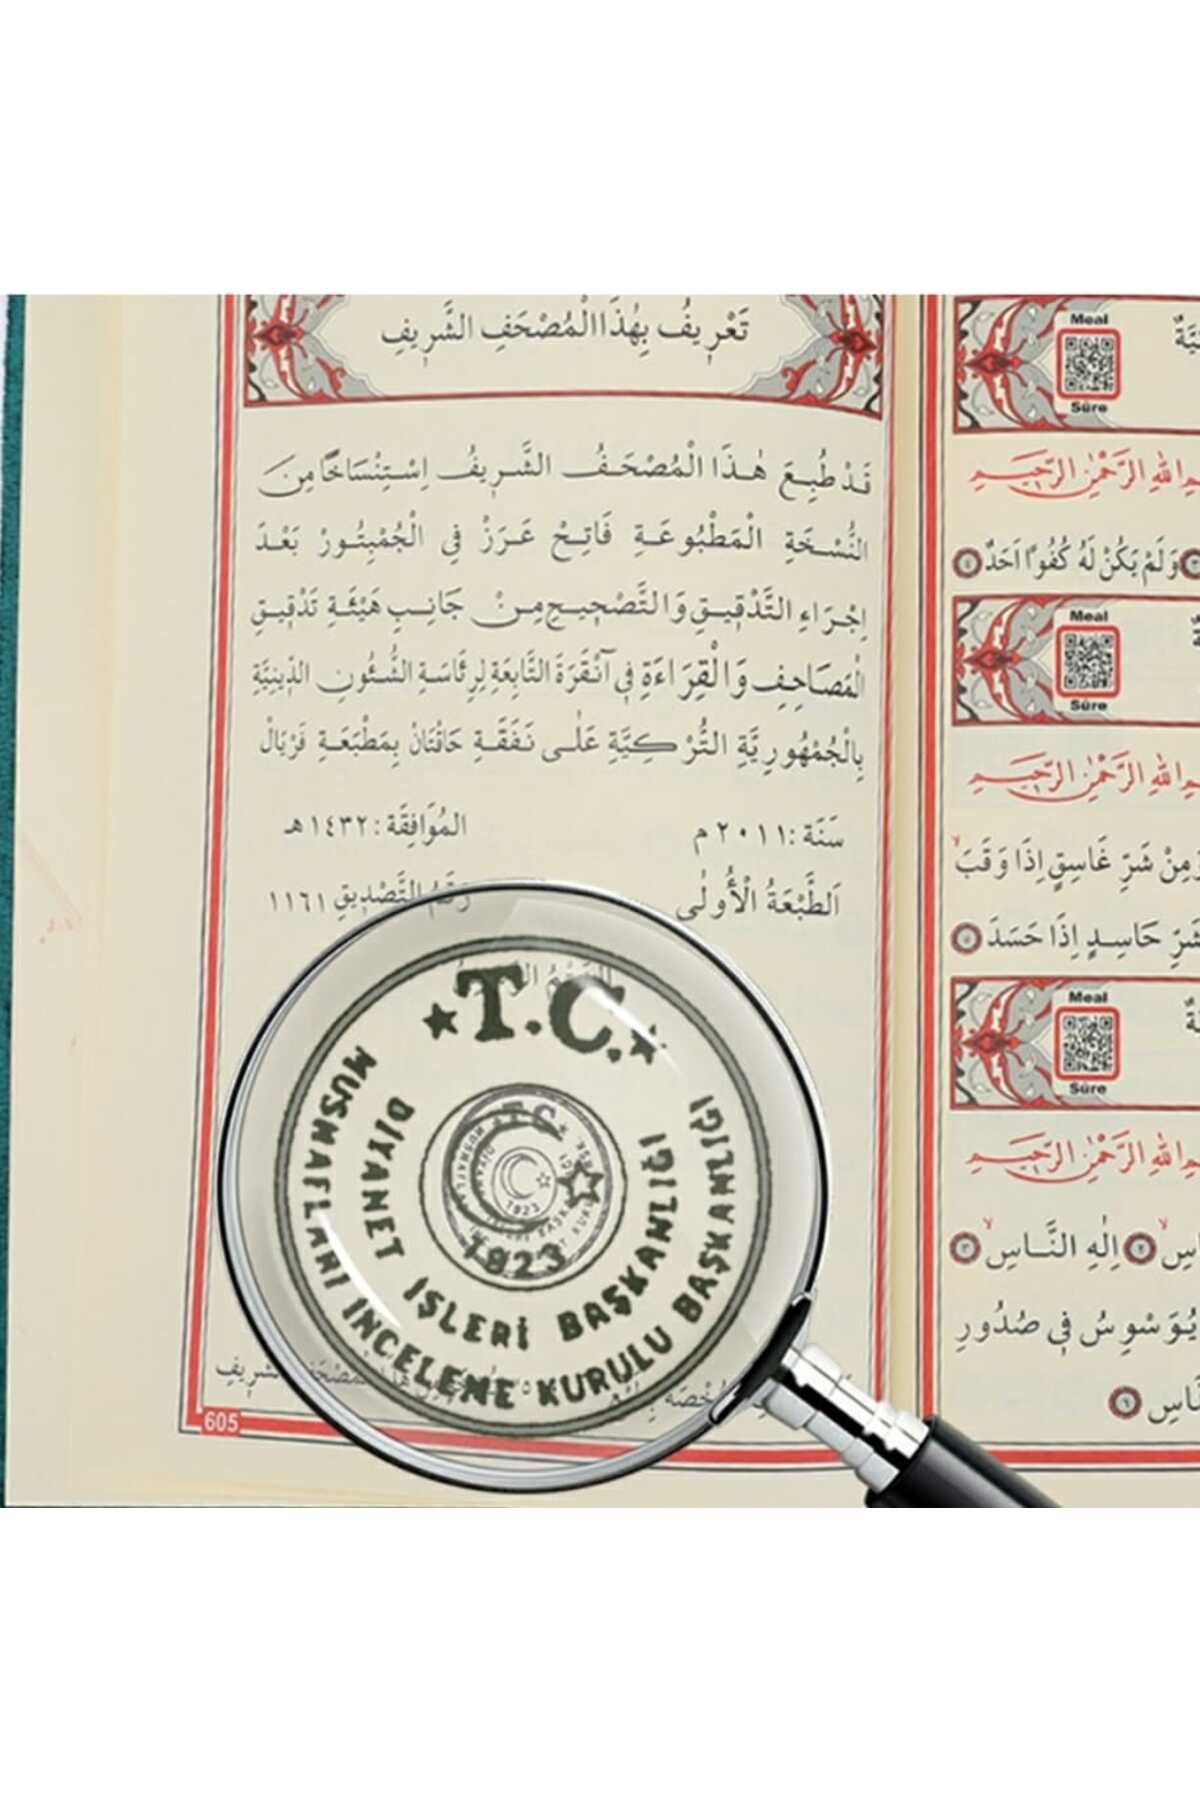 تَعْرِيفُ بِهٰذَا الْمُصْحَفِ الشَّرِيفِ
قَدْ طُبِعَ هٰذَا الْمُصْحَفُ الشَّرِيفُ اِسْتِنْسَاخًا مِنَ
النُّسْخَةِ الْمَطْبُوعَةِ فَاتِحْ عَرَزْ فِي الْجُمْبِتُورْ بَعْدَ
اِجْرَاءِ التَّدْقِيقِ وَالتَّصْحِيحِ مِنْ جَانِبِ هَيْئَةِ تَدْقِيقِ
الْمَصَاحِفِ وَالْقِرَاءَةِ فِي آنْقَرَةَ التَّابِعَةِ لِرِئَاسَةِ الشُّئُونِ الدِّينِيَّةِ
بِالْجُمْهُورِيَّةِ التُّرْكِيَّةِ عَلٰى نَفَقَةِ حَاقْتَانْ بِمَطْبَعَةِ فَرْيَالْ
سَنَة : ٢٠١١ م المُوَافِقَة : ١٤٣٢ هـ
اَلطَّبْعَةُ الْأُولٰى رَقَمُ التَّصْدِيقِ ١١٦١
★ T.C. ★
MUSHAFLARI İNCELEME KURULU BAŞKANLIĞI
DİYANET İŞLERİ BAŞKANLIĞI
1923
605
Meal
Sûre
الرَّحْمٰنِ الرَّحِيمِ
وَلَمْ يَكُنْ لَهُ كُفُوًا اَحَدٌ ٤
Meal
Sûre
الرَّحْمٰنِ الرَّحِيمِ
مِنْ شَرِّ غَاسِقٍ اِذَا وَقَبَ
شَرِّ حَاسِدٍ اِذَا حَسَدَ ٥
Meal
Sûre
الرَّحْمٰنِ الرَّحِيمِ
٢ اِلٰهِ النَّاسِ ٣
يُوَسْوِسُ فِي صُدُورِ
٦